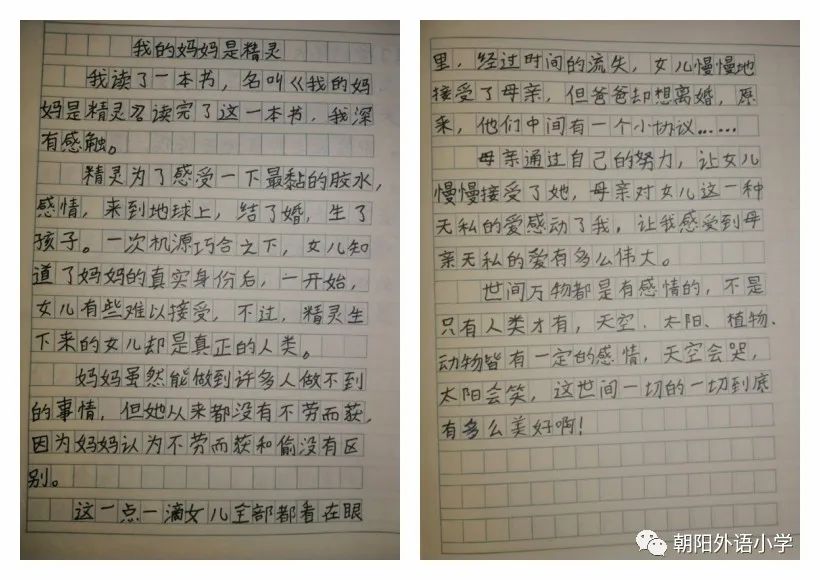 我的妈妈是精灵
我读了一本书，名叫《我的妈
妈是精灵》读完了这一本书，我深
有感触。
精灵为了感受一下最黏的胶水，
感情，来到地球上，结了婚，生了
孩子。一次机源巧合之下，女儿知
道了妈妈的真实身份后，一开始，
女儿有些难以接受，不过，精灵生
下来的女儿却是真正的人类。
妈妈虽然能做到许多人做不到
的事情，但她从来都没有不劳而获，
因为妈妈认为不劳而获和偷没有区
别。
这一点一滴女儿全部都看在眼
里，经过时间的流失，女儿慢慢地
接受了母亲，但爸爸却想离婚，原
来，他们中间有一个小协议……
母亲通过自己的努力，让女儿
慢慢接受了她，母亲对女儿这一种
无私的爱感动了我，让我感受到母
亲无私的爱有多么伟大。
世间万物都是有感情的，不是
只有人类才有，天空、太阳、植物、
动物皆有一定的感情，天空会哭，
太阳会笑，这世间一切的一切到底
有多么美好啊！
朝阳外语小学